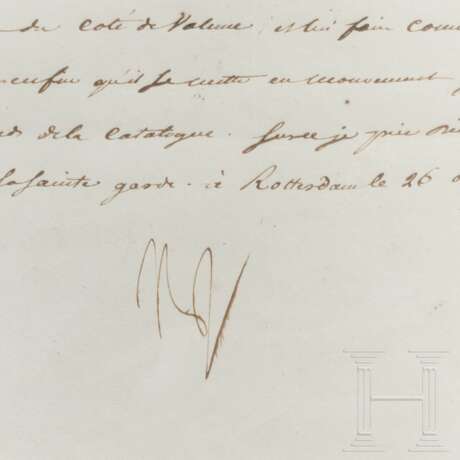 du coté de Valence et lui faire
qu'il se mette en mouvement
de la Catalogne. Sur ce je prie
sa sainte garde. à Rotterdam le 26
Np
H